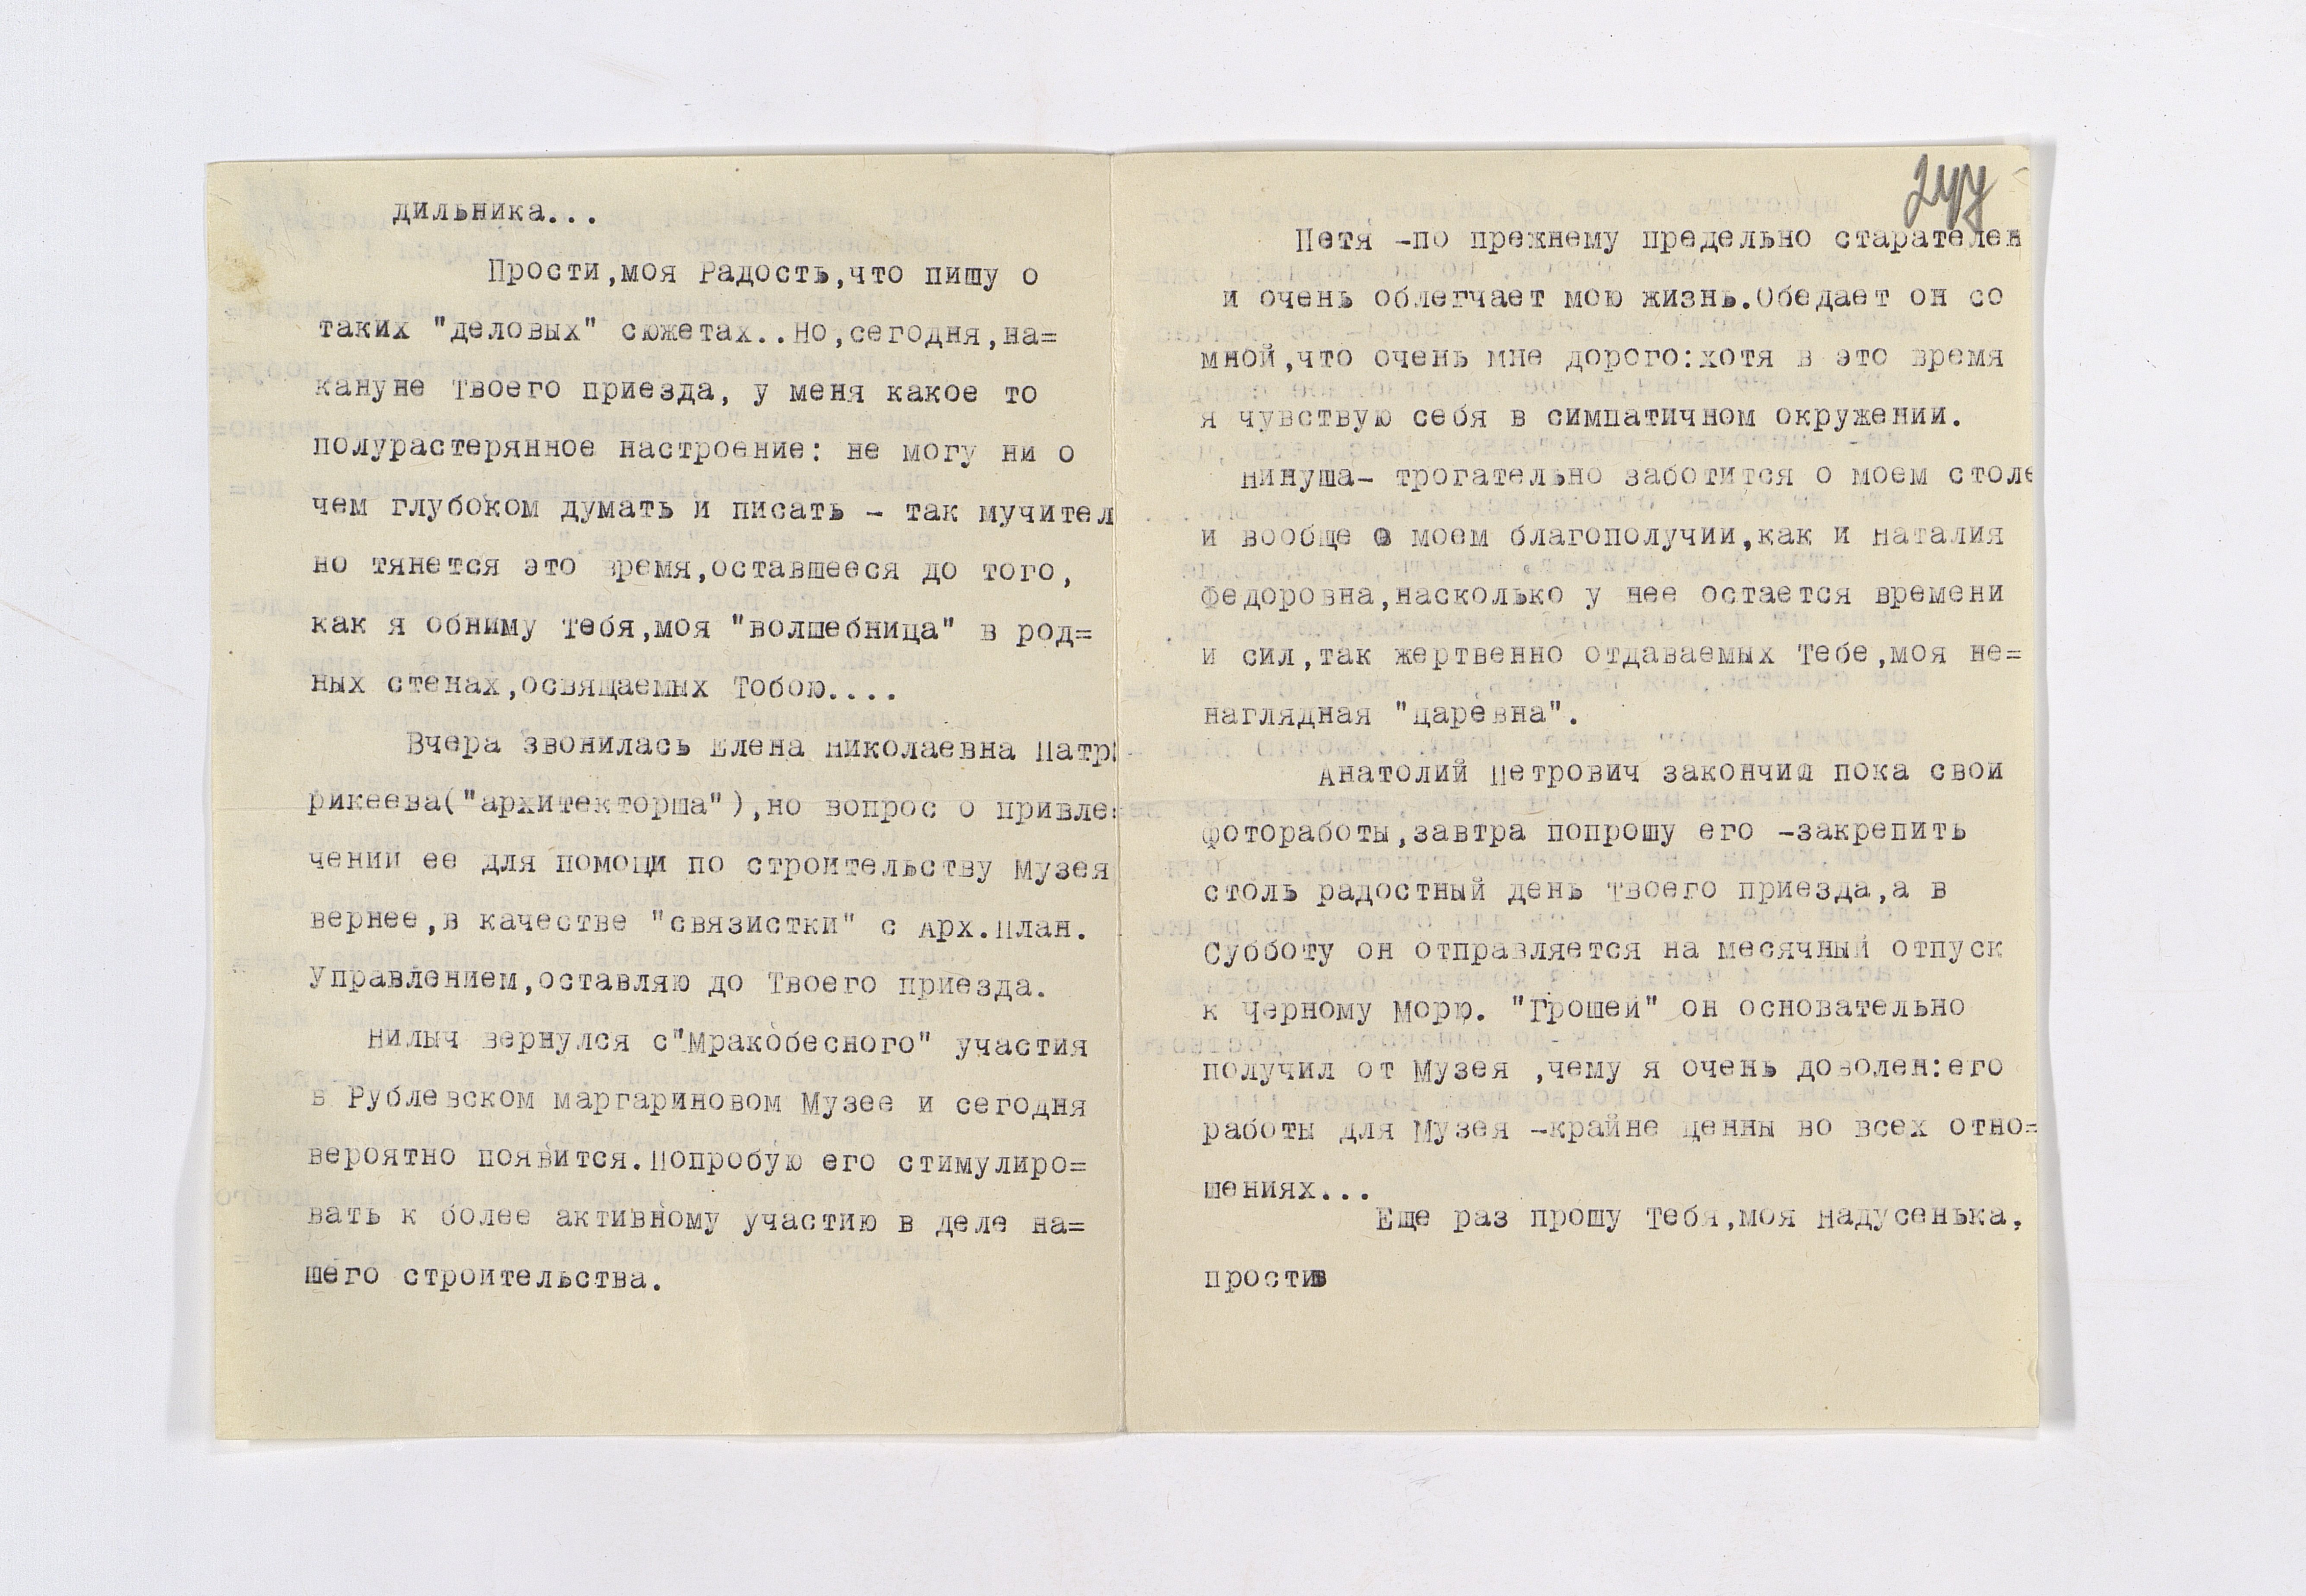 дильника...
Прости,моя Радость,что пишу о
таких "деловых" сюжетах..Но,сегодня,на=
кануне Твоего приезда, у меня какое то
полурастерянное настроение: не могу ни о
чем глубоком думать и писать - так мучител
но тянется это время,оставшееся до того,
как я обниму Тебя,моя "волшебница" в род=
ных стенах,освящаемых Тобою....
Вчера звонилась Елена Николаевна Патр
рикеева("архитекторша"),но вопрос о привле=
чении ее для помощи по строительству Музея
вернее,в качестве "связистки" с Арх.План.
Управлением,оставляю до Твоего приезда.
Нилыч вернулся с"Мракобесного" участия
в Рублевском маргариновом Музее и сегодня
вероятно появится.Попробую его стимулиро=
вать к более активному участию в деле на=
шего строительства.
247
Петя -по прежнему предельно старателен
и очень облегчает мою жизнь.Обедает он со
мной,что очень мне дорого:хотя в это время
я чувствую себя в симпатичном окружении.
Нинуша- трогательно заботится о моем столе
и вообще о моем благополучии,как и Наталия
Федоровна,насколько у нее остается времени
и сил,так жертвенно отдаваемых Тебе,моя не=
наглядная "царевна".
Анатолий Петрович закончил пока свои
фотоработы,завтра попрошу его -закрепить
столь радостный день Твоего приезда,а в
Субботу он отправляется на месячный отпуск
к Черному Морю. "Грошей" он основательно
получил от Музея ,чему я очень доволен:его
работы для Музея -крайне ценны во всех отно=
шениях...
Еще раз прошу Тебя,моя Надусенька,
прости